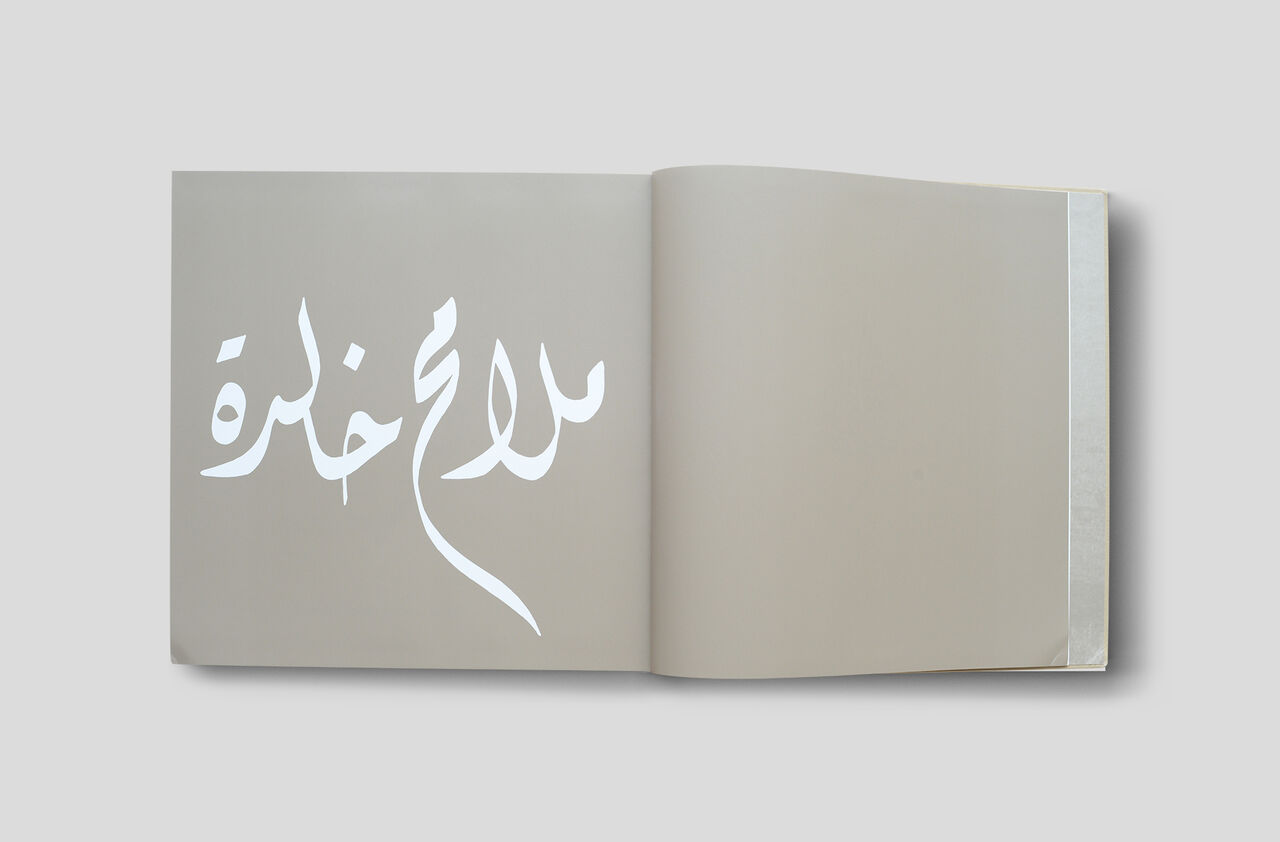 ملامح خالدة